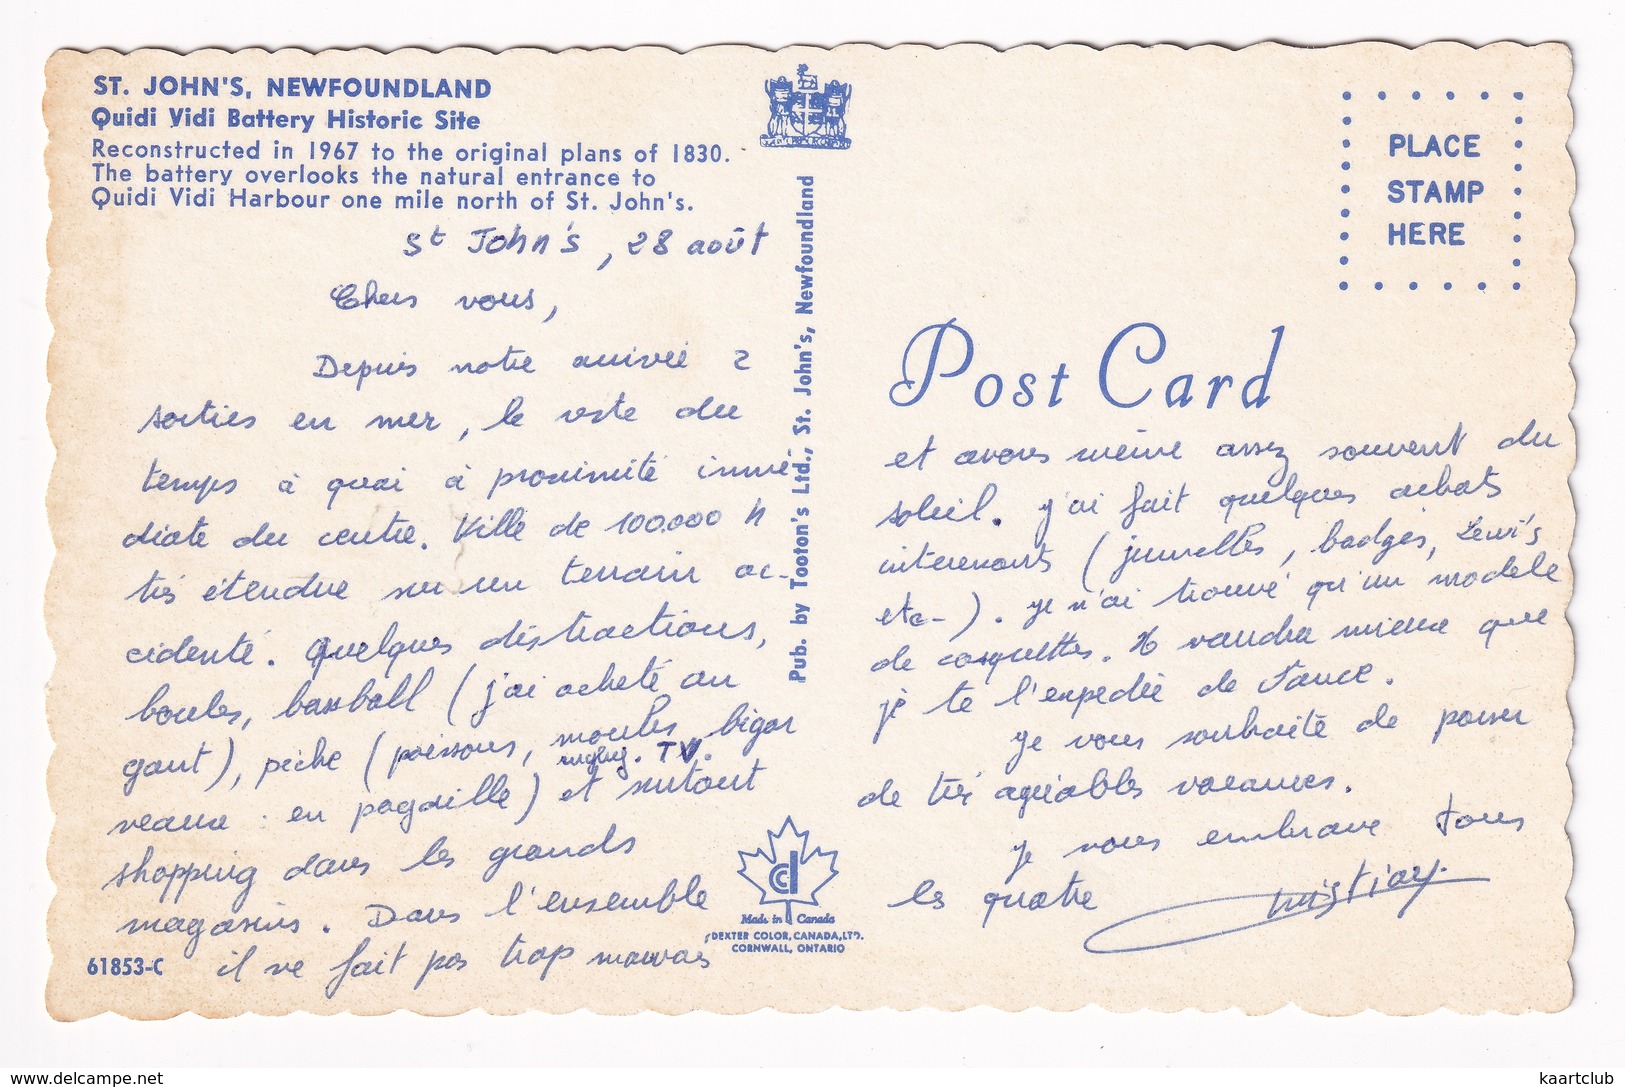 ST. JOHN'S, NEWFOUNDLAND
Quidi Vidi Battery Historic Site
Reconstructed in 1967 to the original plans of 1830.
The battery overlooks the natural entrance to
Quidi Vidi Harbour one mile north of St. John's.
St John's, 28 août
Chers vous,
Depuis notre arrivée 2
sorties en mer, le reste du
temps à quai à proximité immé
diate du centre. Ville de 100.000 h
très étendue sur un terrain ac-
cidenté. Quelques distractions,
boules, baseball (j'ai acheté un
gant), pêche (poissons, moules, bigor
veaux : en pagaille) rugby. TV. et surtout
shopping dans les grands
magasins. Dans l'ensemble
il ne fait pas trop mauvais
61853-C
Pub. by Tooton's Ltd., St. John's, Newfoundland
Made in Canada
DEXTER COLOR, CANADA, LTD.
CORNWALL, ONTARIO
PLACE
STAMP
HERE
Post Card
et avons même assez souvent du
soleil. J'ai fait quelques achats
intéressants (jumelles, badges, Levi's
etc-). Je n'ai trouvé qu'un modèle
de casquettes. Il vaudra mieux que
je te l'expédie de France.
Je vous souhaite de passer
de très agréables vacances.
Je vous embrasse tous
les quatre
delcampe.net
kaartclub